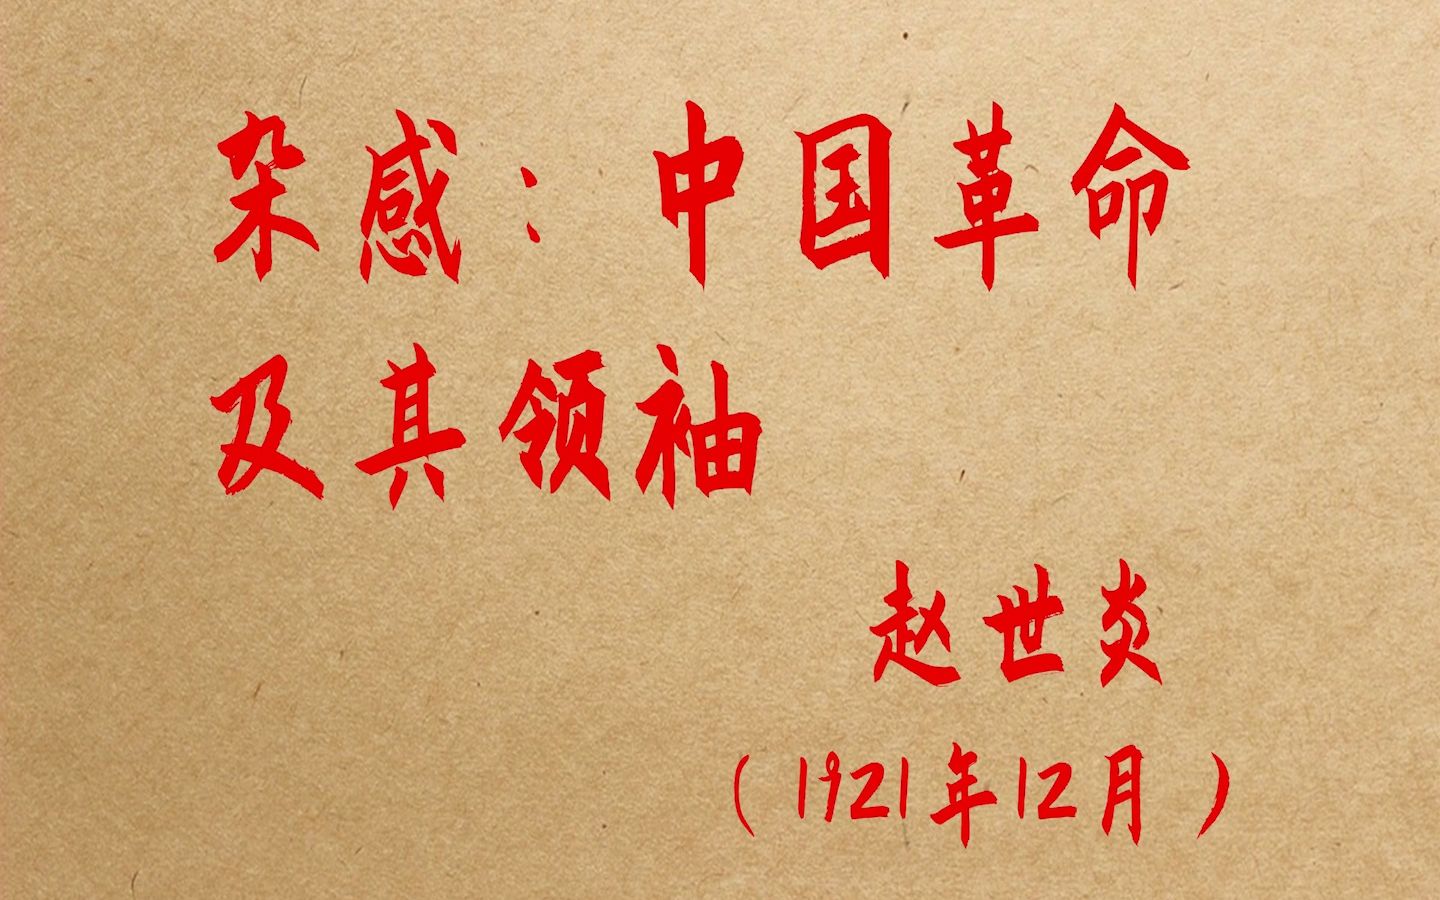 杂感：中国革命
及其领袖
赵世炎
（1921年12月）